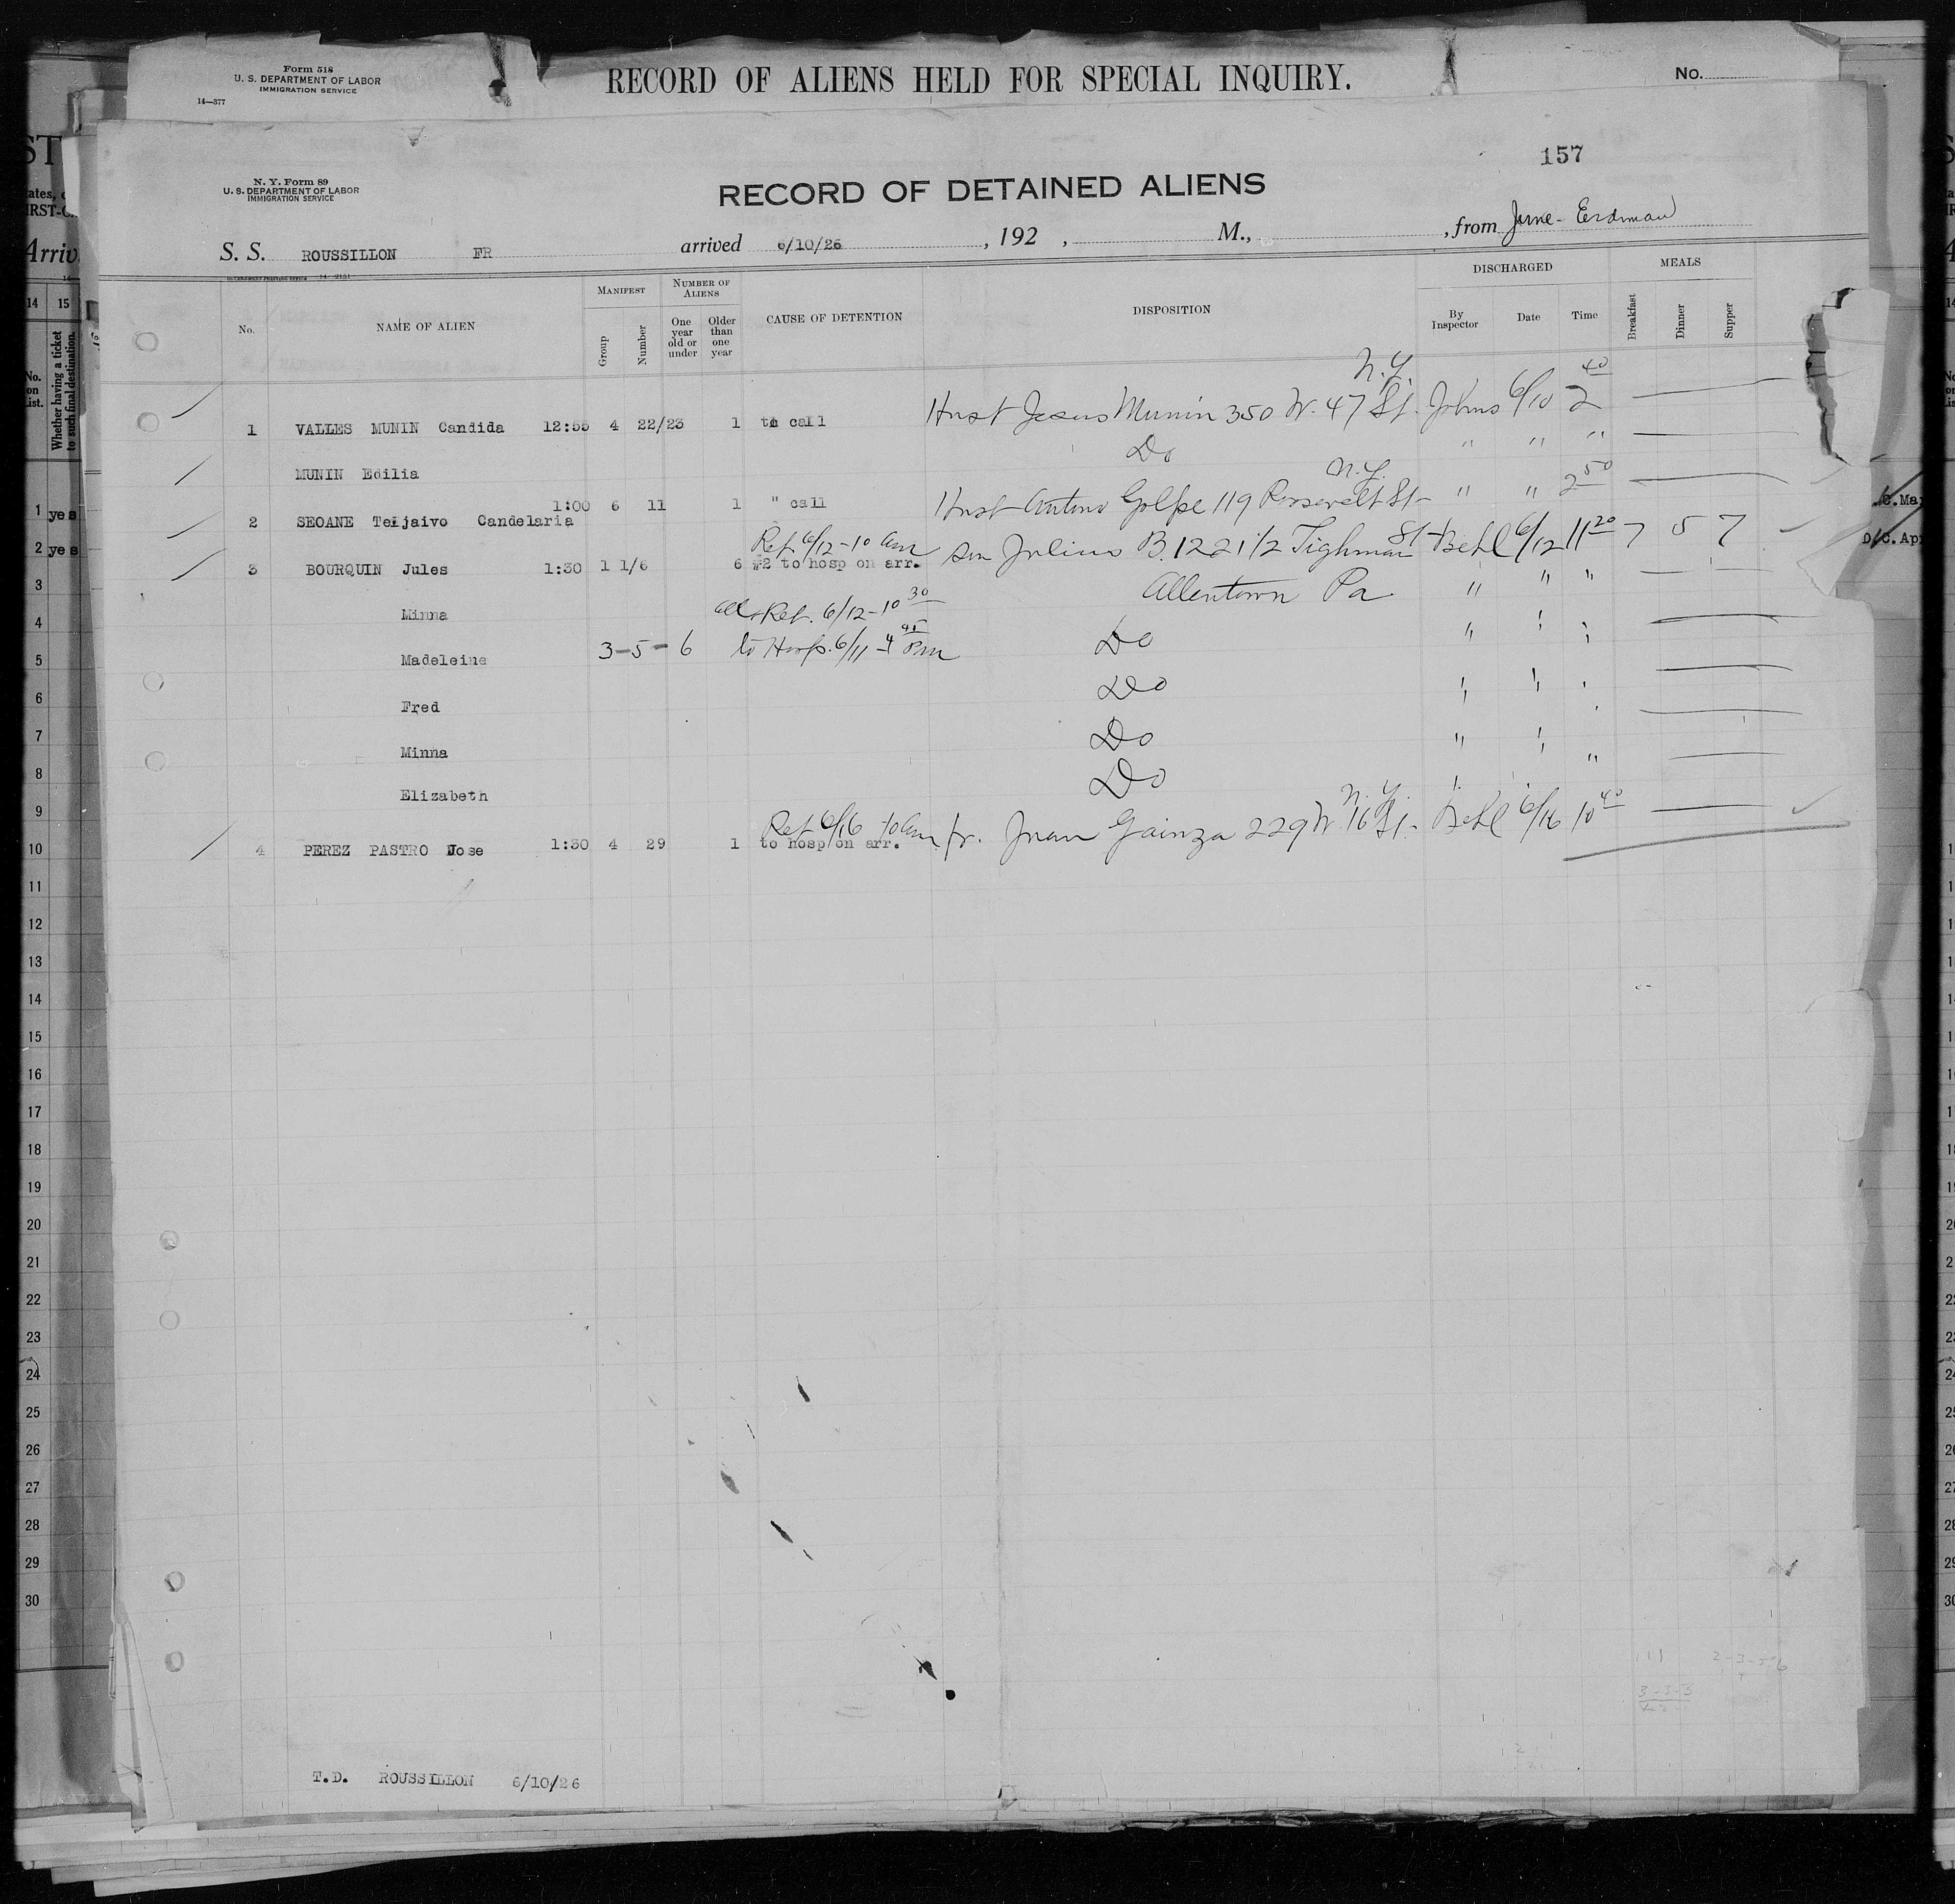 Form 518
U. S. DEPARTMENT OF LABOR
IMMIGRATION SERVICE
14—377
RECORD OF ALIENS HELD FOR SPECIAL INQUIRY.
No.
157
N. Y. Form 89
U. S. DEPARTMENT OF LABOR
IMMIGRATION SERVICE
RECORD OF DETAINED ALIENS
S. S. ROUSSILLON FR arrived 6/10/26 , 192 , M., , from June - Erdman
14—2151
No. NAME OF ALIEN MANIFEST NUMBER OF ALIENS CAUSE OF DETENTION DISPOSITION DISCHARGED MEALS
Group Number One year old or under Older than one year By Inspector Date Time Breakfast Dinner Supper
N.Y.
1 VALLES MUNIN Candida 12:55 4 22/23 1 to call Hust Jesus Munin 350 W. 47 St. Johns 6/10 2 40
MUNIN Edilia Do " " "
N.Y.
2 SEOANE Teijaivo Candelaria 1:00 6 11 1 " call Hust Antono Golpe 119 Roosevelt St - " " 2 50
Ret 6/12 - 10 am
3 BOURQUIN Jules 1:30 1 1/6 6 #2 to hosp on arr. son Julius B. 1221 1/2 Tighman St - Behl 6/12 11 20 7 5 7
Minna all Ret. 6/12 - 10 30 Allentown Pa " " "
Madeleine 3-5-6 to Hosp. 6/11 - 4 45 Pm Do " " "
Fred Do " " "
Minna Do " " "
Elizabeth Do
Ret 6/16 10 am N.Y.
4 PEREZ PASTRO Jose 1:30 4 29 1 to hosp on arr. fr. Juan Gainza 229 W 16 St. - Behl 6/16 10 40
T.D. ROUSSILLON 6/10/26
14 15
Whether having a ticket to such final destination.
No. on List.
1 yes
2 yes
3
4
5
6
7
8
9
10
11
12
13
14
15
16
17
18
19
20
21
22
23
24
25
26
27
28
29
30